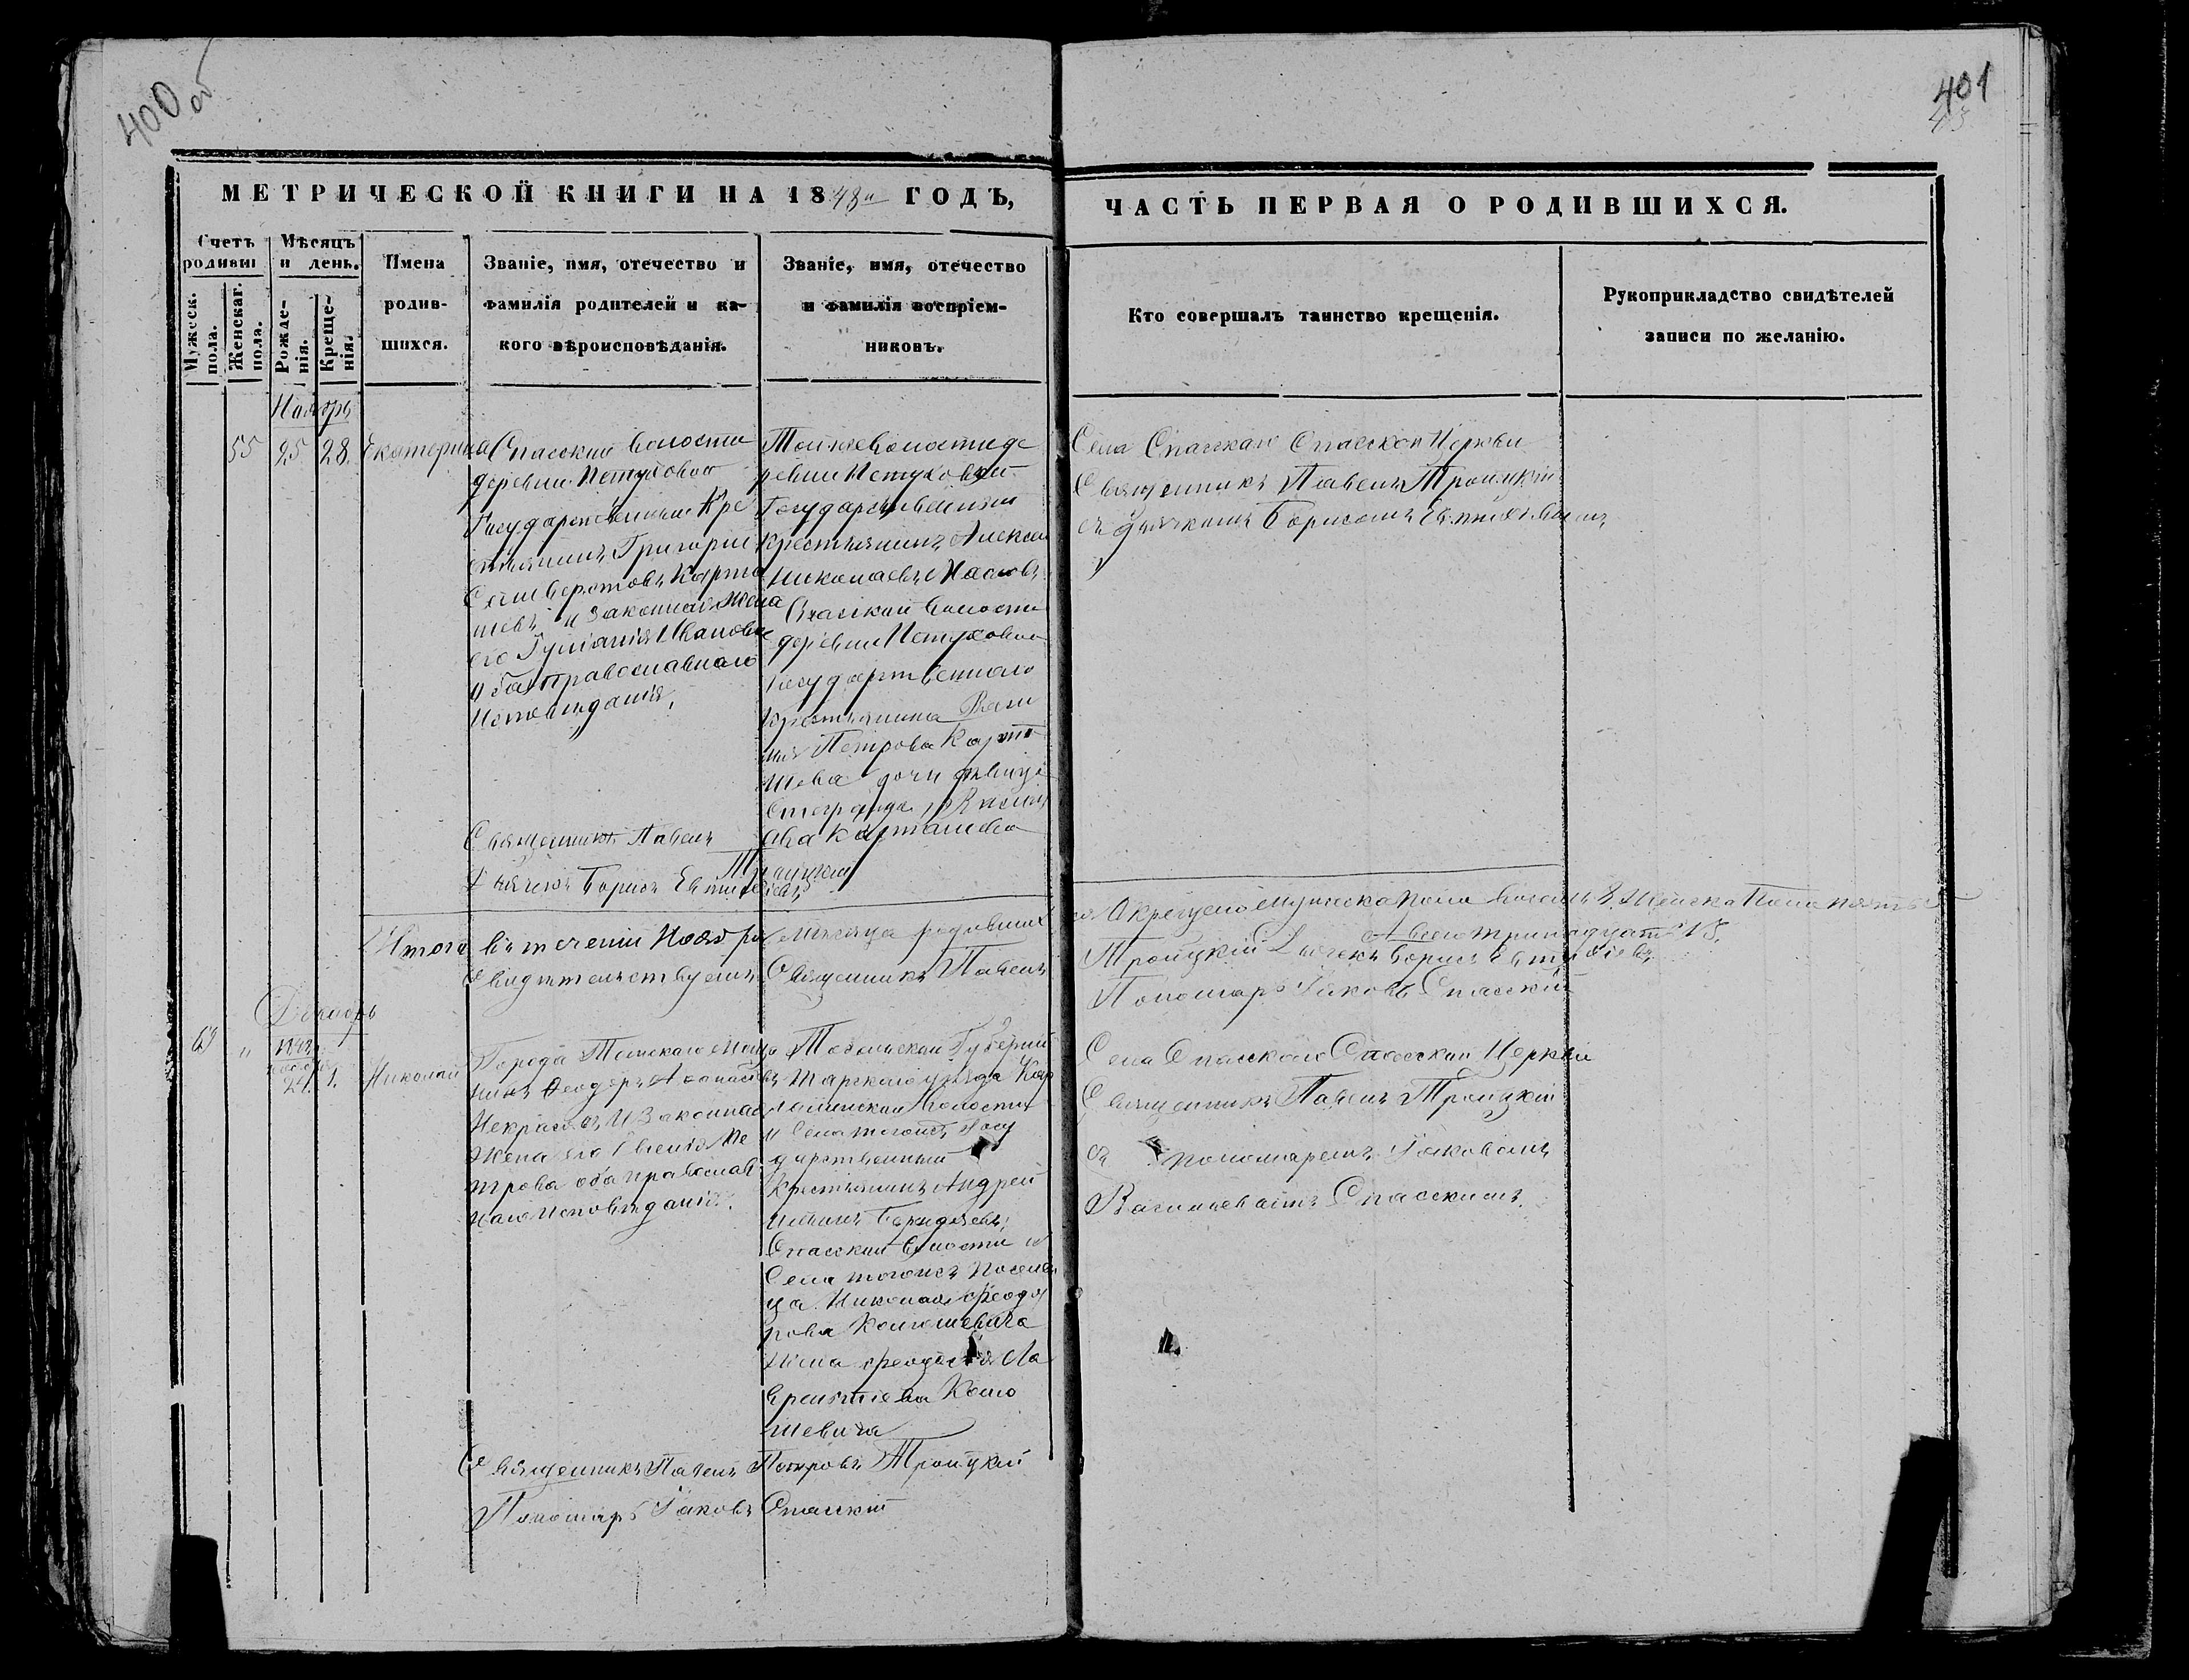 400 об
401
43
МЕТРИЧЕСКОЙ КНИГИ НА 1848й ГОДЪ,
ЧАСТЬ ПЕРВАЯ О РОДИВШИХСЯ.
Счетъ родивш
Мужеск. пола.
Женскаг. пола.
Мѣсяцъ и день.
Рожде-
нія.
Креще-
нія.
Имена
родив-
шихся.
Званіе, имя, отечество и
фамилія родителей и ка-
кого вѣроисповѣданія.
Званіе, имя, отечество
и фамилія воспріем-
никовъ.
Кто совершалъ таинство крещенія.
Рукоприкладство свидѣтелей
записи по желанію.
Ноябрь
55 25 28. Екатерина
Спасской волости
деревни Петуховой
Государственный Кре
стьянинъ Григорий
Селиверстовъ Карта
шевъ и законная жена
его Іуліанія Иванова
оба православнаго
Исповѣданія,
Той же волости де
ревни Петуховой
Государственный
крестьянинъ Алексей
Николаевъ
Спасской волости
деревни Петуховой
Государственнаго
Крестьянина Васи
лія Петрова Карта
шева дочи девица
Василь
ева Карташева
Села Спаскаго Спасской Церкви
Священникъ Павелъ Троицкій
съ дьячкомъ Борисомъ Евтифѣевымъ
Священникъ Павелъ
Троицкій
Дьячекъ Борисъ Евтифѣевъ
Итого въ теченіи Ноября месяца родившихся
Окрещено мужеска пола восемь 8. Женска Пола пять 5
А всего тринадцать 13.
Свидѣтельствуемъ Священникъ Павелъ
Троицкій Дьячекъ Борисъ Евтифѣевъ
Пономарь Іаковъ Спасскій
Декабрь
" 1. Николай
Города Томскаго меща
нинъ Феодоръ
Некрасовъ и Законная
Жена его Пе
трова оба православ
наго Исповѣданія.
Тобольской Губерніи
Тарскаго уѣзда
волости
и Села тогожъ Госу
дарственный
Крестьянинъ Андрей
Спасской волости и
Села тогожъ поселен
ца Николая Феодо
рова
Жена Феодосія Ла
врентіева
шевича
Села Спасскаго Спасской Церкви
Священникъ Павелъ Троицкій
съ пономаремъ Іаковомъ
Васильевымъ Спасскимъ.
Священникъ Павелъ Петровъ Троицкій
Пономарь Іаковъ Спасскій